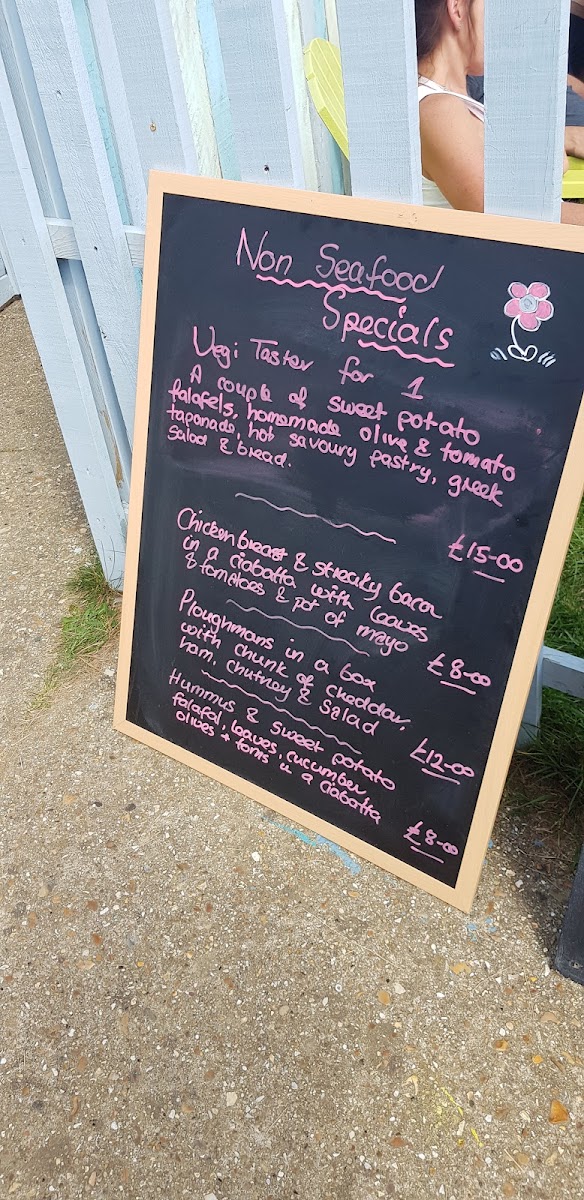 Non Seafood
Specials
Vegi Taster for 1
A couple of sweet potato
falafels, homemade olive & tomato
tapanade, hot savoury pastry, greek
salad & bread.
£15-00
Chicken breast & streaky bacon
in a ciabatta with leaves
& tomatoes & pot of mayo
£8-00
Ploughmans in a box
with chunk of cheddar,
ham, chutney & salad
£12-00
Hummus & sweet potato
falafal, leaves, cucumber
olives + toms in a ciabatta
£8-00